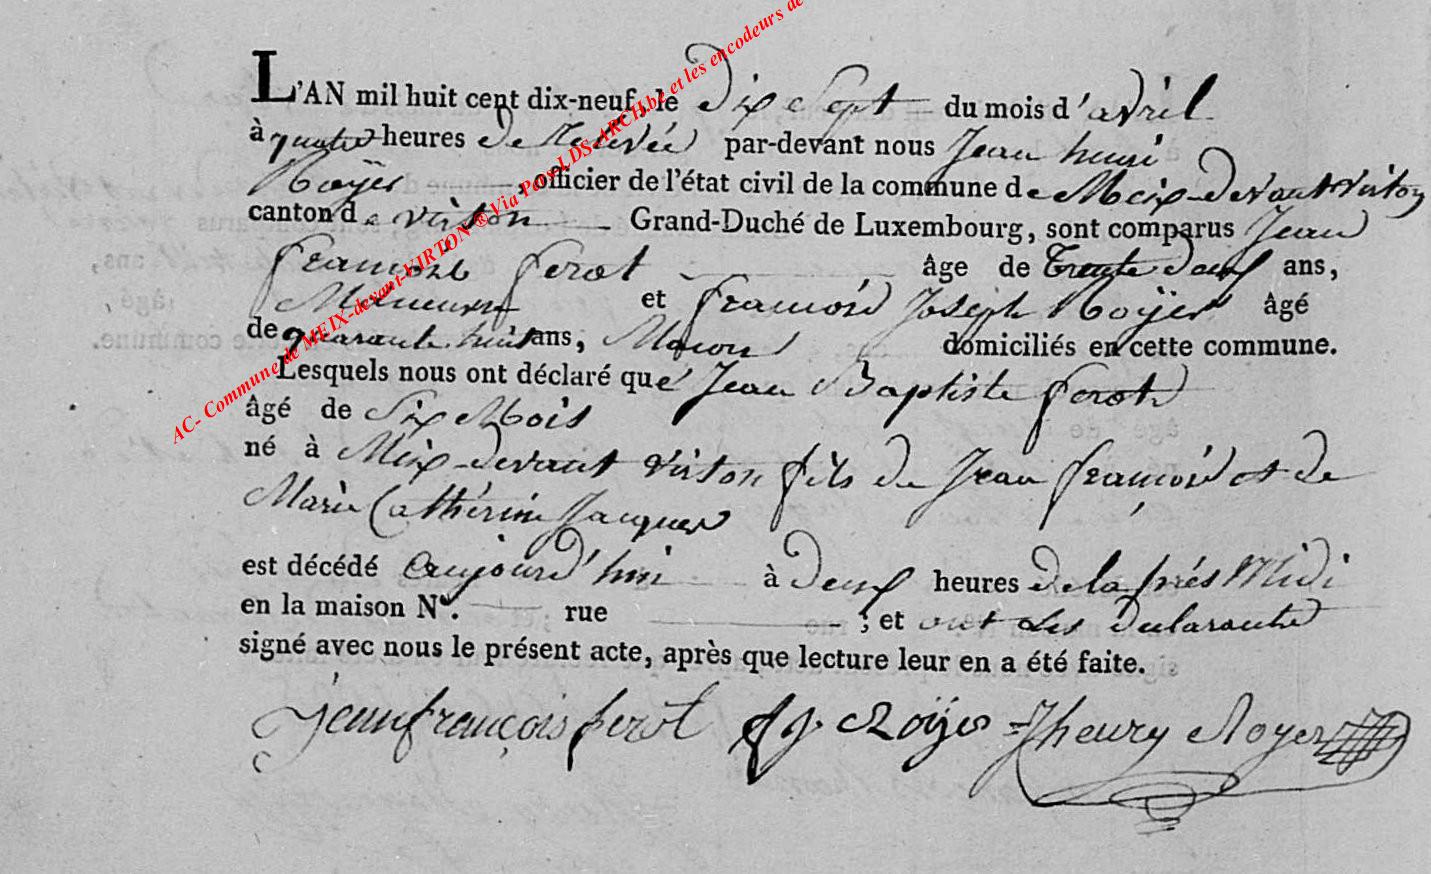 L'AN mil huit cent dix-neuf, le dix Sept du mois d'avril
à quatre heures de Relevée par-devant nous Jean henri
Roÿer, officier de l'état civil de la commune de Meix-devant virton
canton de virton Grand-Duché de Luxembourg, sont comparus Jean
françois ferot âge de trente deux ans,
et françois Joseph Roÿer âgé
de quarante huit ans, Maçon domiciliés en cette commune.
Lesquels nous ont déclaré que Jean Baptiste ferot
âgé de Six Mois
né à Meix-devant virton fils de Jean françois et de
Marie Catherine Jacques
est décédé aujourd'hui à deux heures de la prés Midi
en la maison N°. rue ; et ont Les declarants
signé avec nous le présent acte, après que lecture leur en a été faite.
jean françois ferot f j Roÿer J henry Royer
AC- Commune de MEIX-devant-VIRTON ® Via Pers-LDS-ARCH.be et les encodeurs de